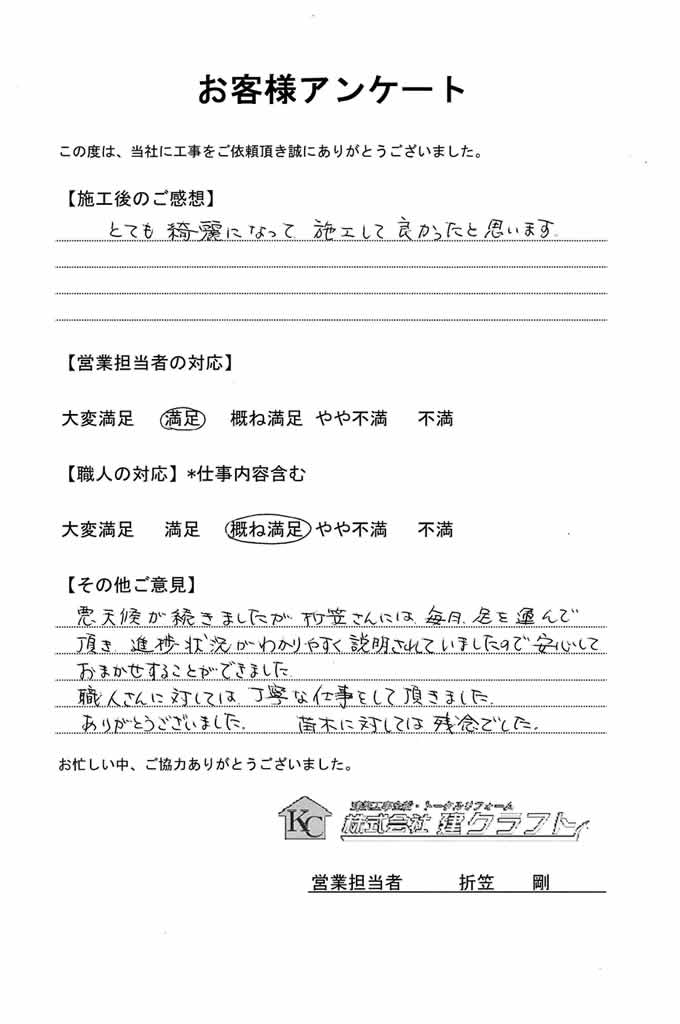 お客様アンケート
この度は、当社に工事をご依頼頂き誠にありがとうございました。
【施工後のご感想】
とても綺麗になって 施工して良かったと思います。
【営業担当者の対応】
大変満足 満足 概ね満足 やや不満 不満
【職人の対応】*仕事内容含む
大変満足 満足 概ね満足 やや不満 不満
【その他ご意見】
悪天候が続きましたが 折笠さんには、毎日、足を運んで
頂き 進捗状況がわかりやすく説明されていましたので安心して
おまかせすることができました。
職人さんに対しては、丁寧な仕事をして頂きました。
ありがとうございました。 苗木に対しては残念でした。
お忙しい中、ご協力ありがとうございました。
KC
・トータルリフォーム
株式会社 建クラフト
営業担当者 折笠 剛